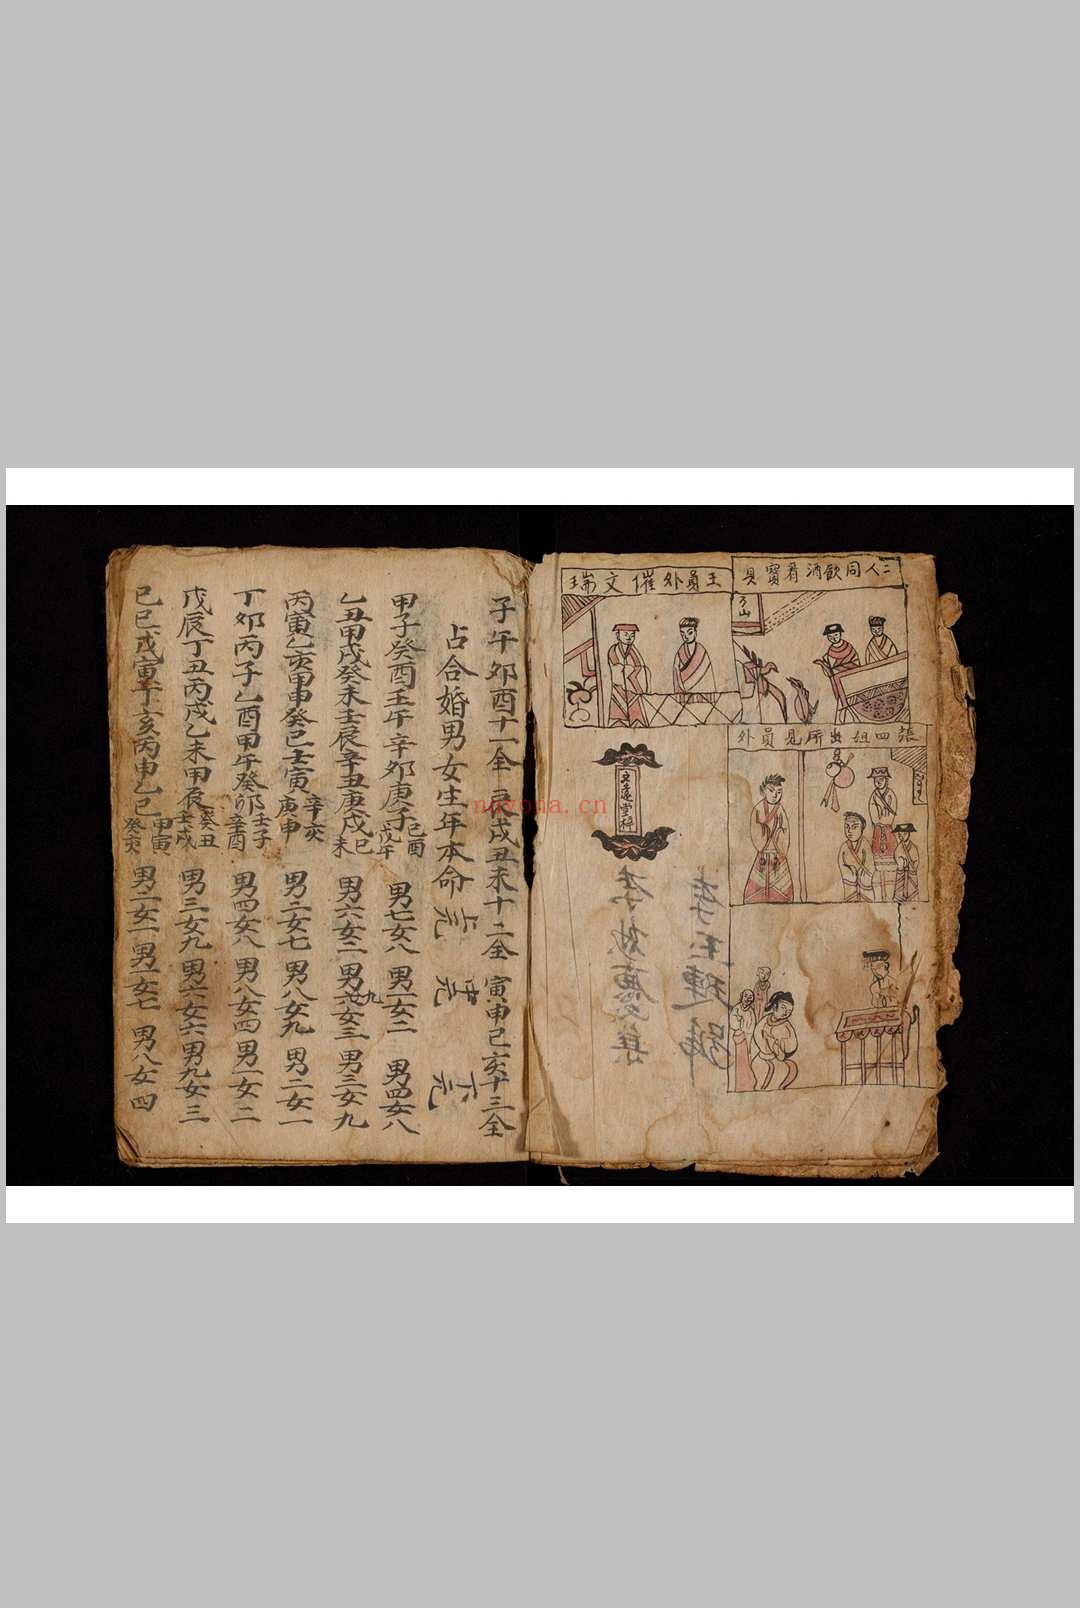 二人同飲酒看寶具
王員外催文瑞
張四姐出所見員外
子午卯酉十一全 辰戌丑未十二全 寅申巳亥十三全
占合婚男女生年本命 上元 中元 下元
甲子癸酉壬午辛卯庚子己酉戊午 男七女八 男一女二 男四女八
乙丑甲戌癸未壬辰辛丑庚戌己未 男六女二 男九女三 男三女九
丙寅乙亥甲申癸巳壬寅辛亥庚申 男二女七 男八女九 男二女一
丁卯丙子乙酉甲午癸卯壬子辛酉 男四女八 男八女四 男一女二
戊辰丁丑丙戌乙未甲辰癸丑壬戌 男三女九 男六女六 男九女三
己巳戊寅丁亥丙申乙巳甲寅癸亥 男二女一 男一女七 男八女四
nuyona.cn